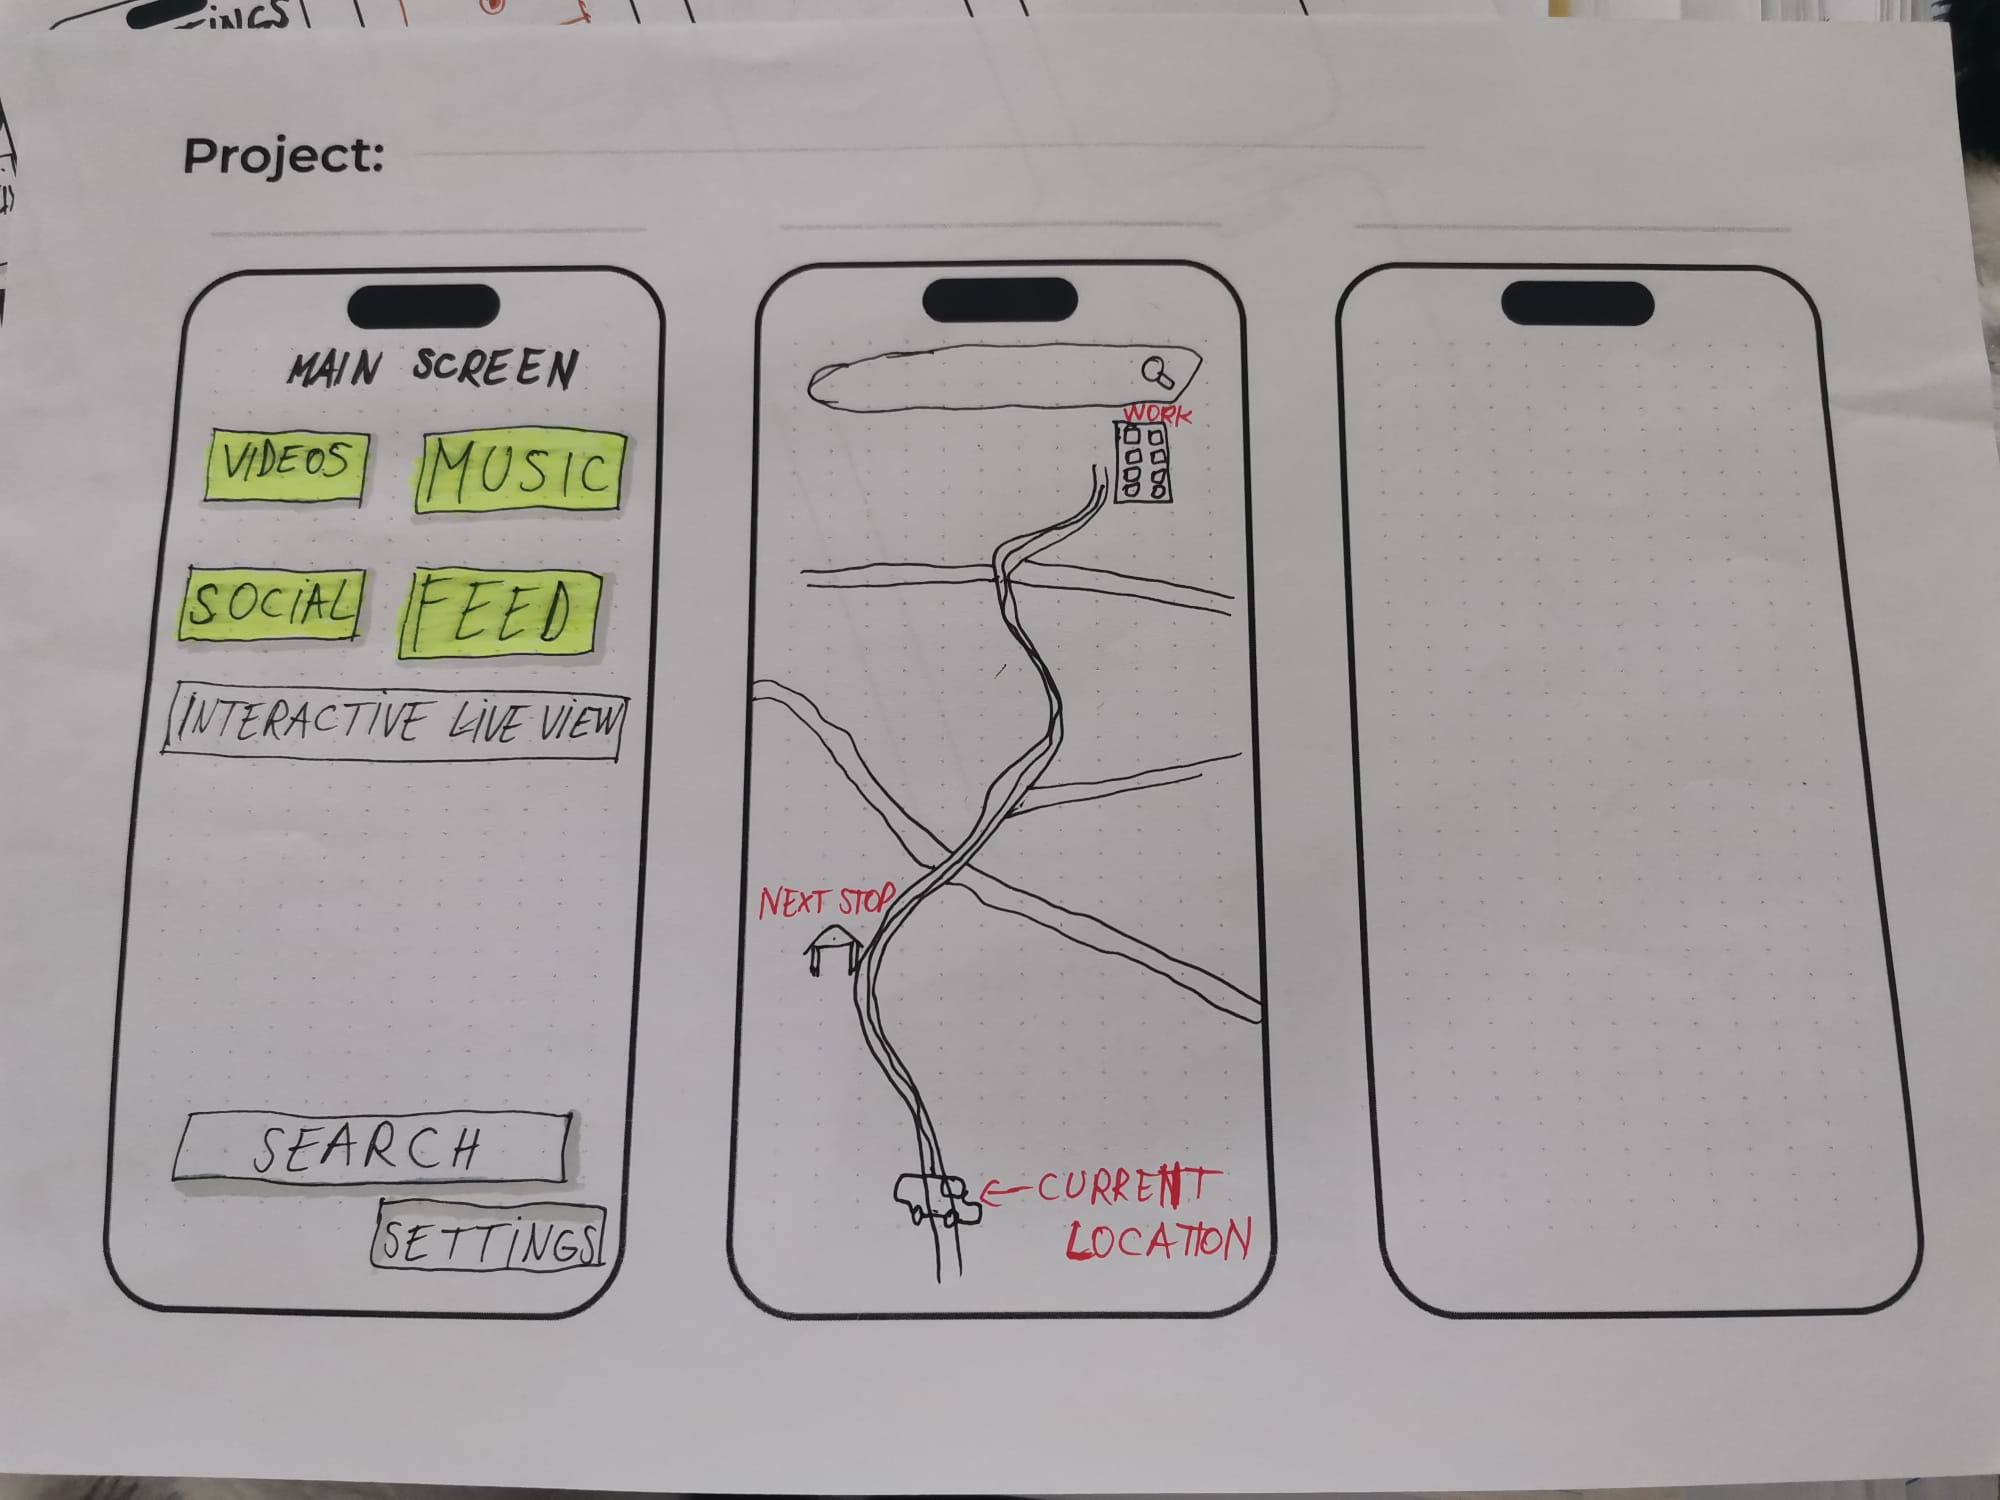 INGS
Project:
MAIN SCREEN
VIDEOS
MUSIC
SOCIAL
FEED
INTERACTIVE LIVE VIEW
SEARCH
SETTINGS
WORK
NEXT STOP
CURRENT
LOCATION